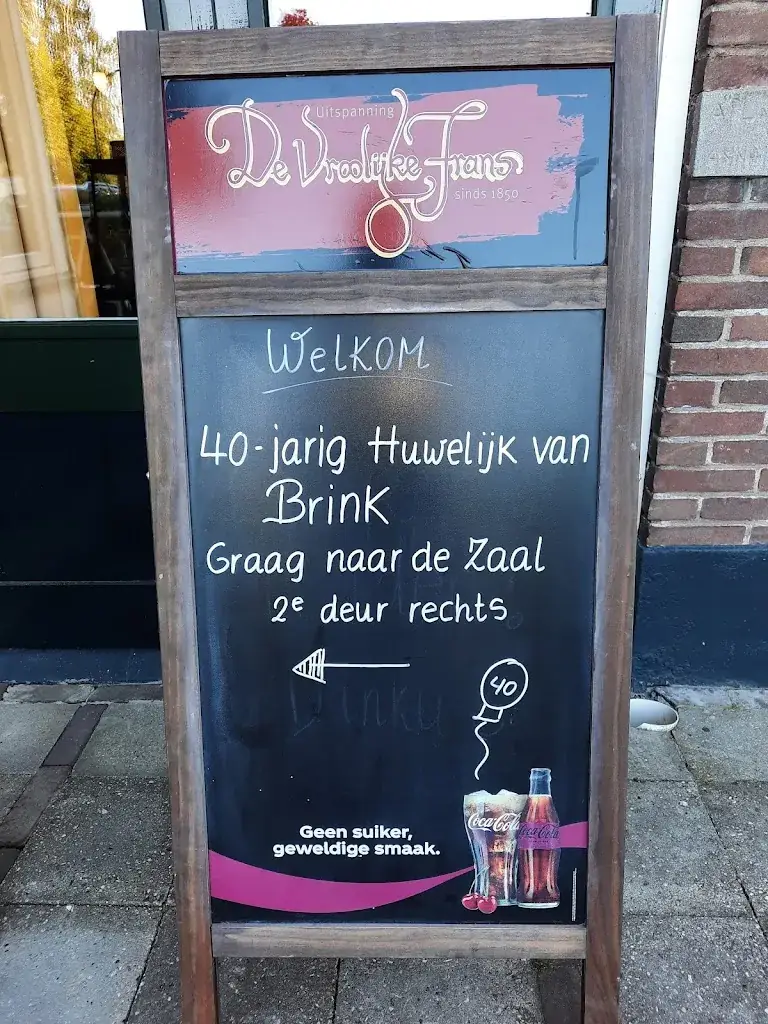 Uitspanning
De Vroolijke Frans
sinds 1850
Welkom
40-jarig Huwelijk van
Brink
Graag naar de Zaal
2e deur rechts
40
Coca-Cola
Coca-Cola
Geen suiker,
geweldige smaak.